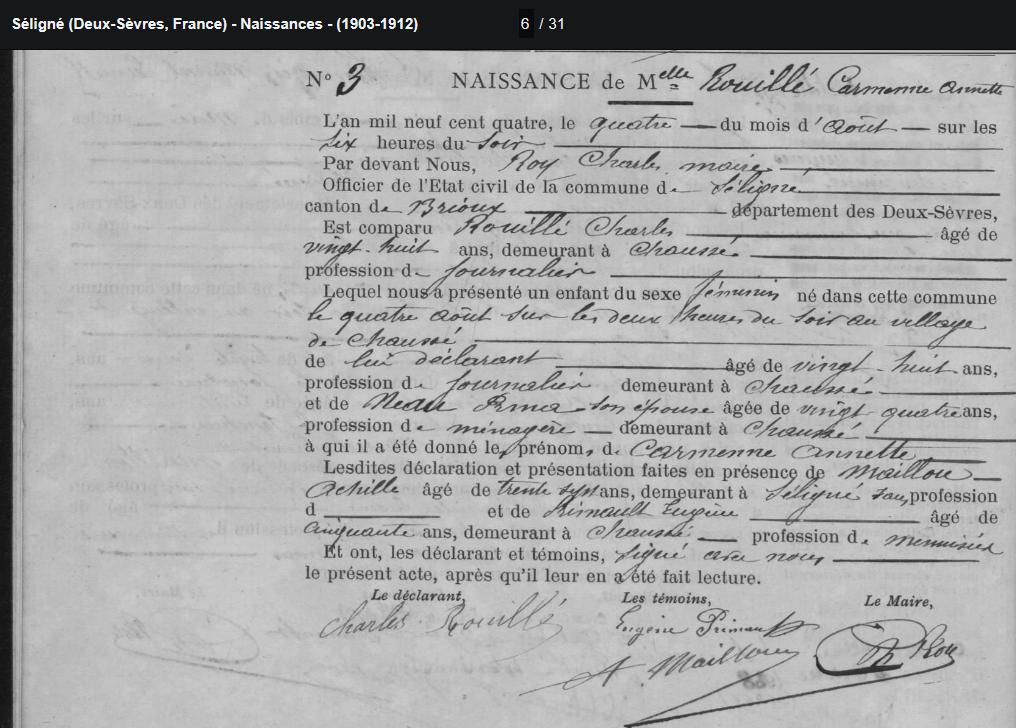 Séligné (Deux-Sèvres, France) - Naissances - (1903-1912) 6 / 31
N° 3 NAISSANCE de Melle Rouillé Carmenne Annette
L'an mil neuf cent quatre, le quatre du mois d'Août sur les
six heures du soir
Par devant Nous, Roy Charles, maire
Officier de l'Etat civil de la commune de Séligné
canton de Brioux département des Deux-Sèvres,
Est comparu Rouillé Charles âgé de
vingt-huit ans, demeurant à Chaussé
profession de journalier
Lequel nous a présenté un enfant du sexe féminin né dans cette commune
le quatre Août sur les deux heures du soir au village
de Chaussé
de lui déclarant âgé de vingt-huit ans,
profession de journalier demeurant à Chaussé
et de Neau Irma son épouse âgée de vingt-quatre ans,
profession de ménagère demeurant à Chaussé
à qui il a été donné les prénoms de Carmenne Annette
Lesdites déclaration et présentation faites en présence de Maillou
Achille âgé de trente sept ans, demeurant à Séligné sans profession
d et de Primault Eugène âgé de
cinquante ans, demeurant à Chaussé profession de menuisier
Et ont, les déclarant et témoins, signé avec nous
le présent acte, après qu'il leur en a été fait lecture.
Le déclarant, Les témoins, Le Maire,
Charles Rouillé Eugène Primault
A. Maillou Ch Roy